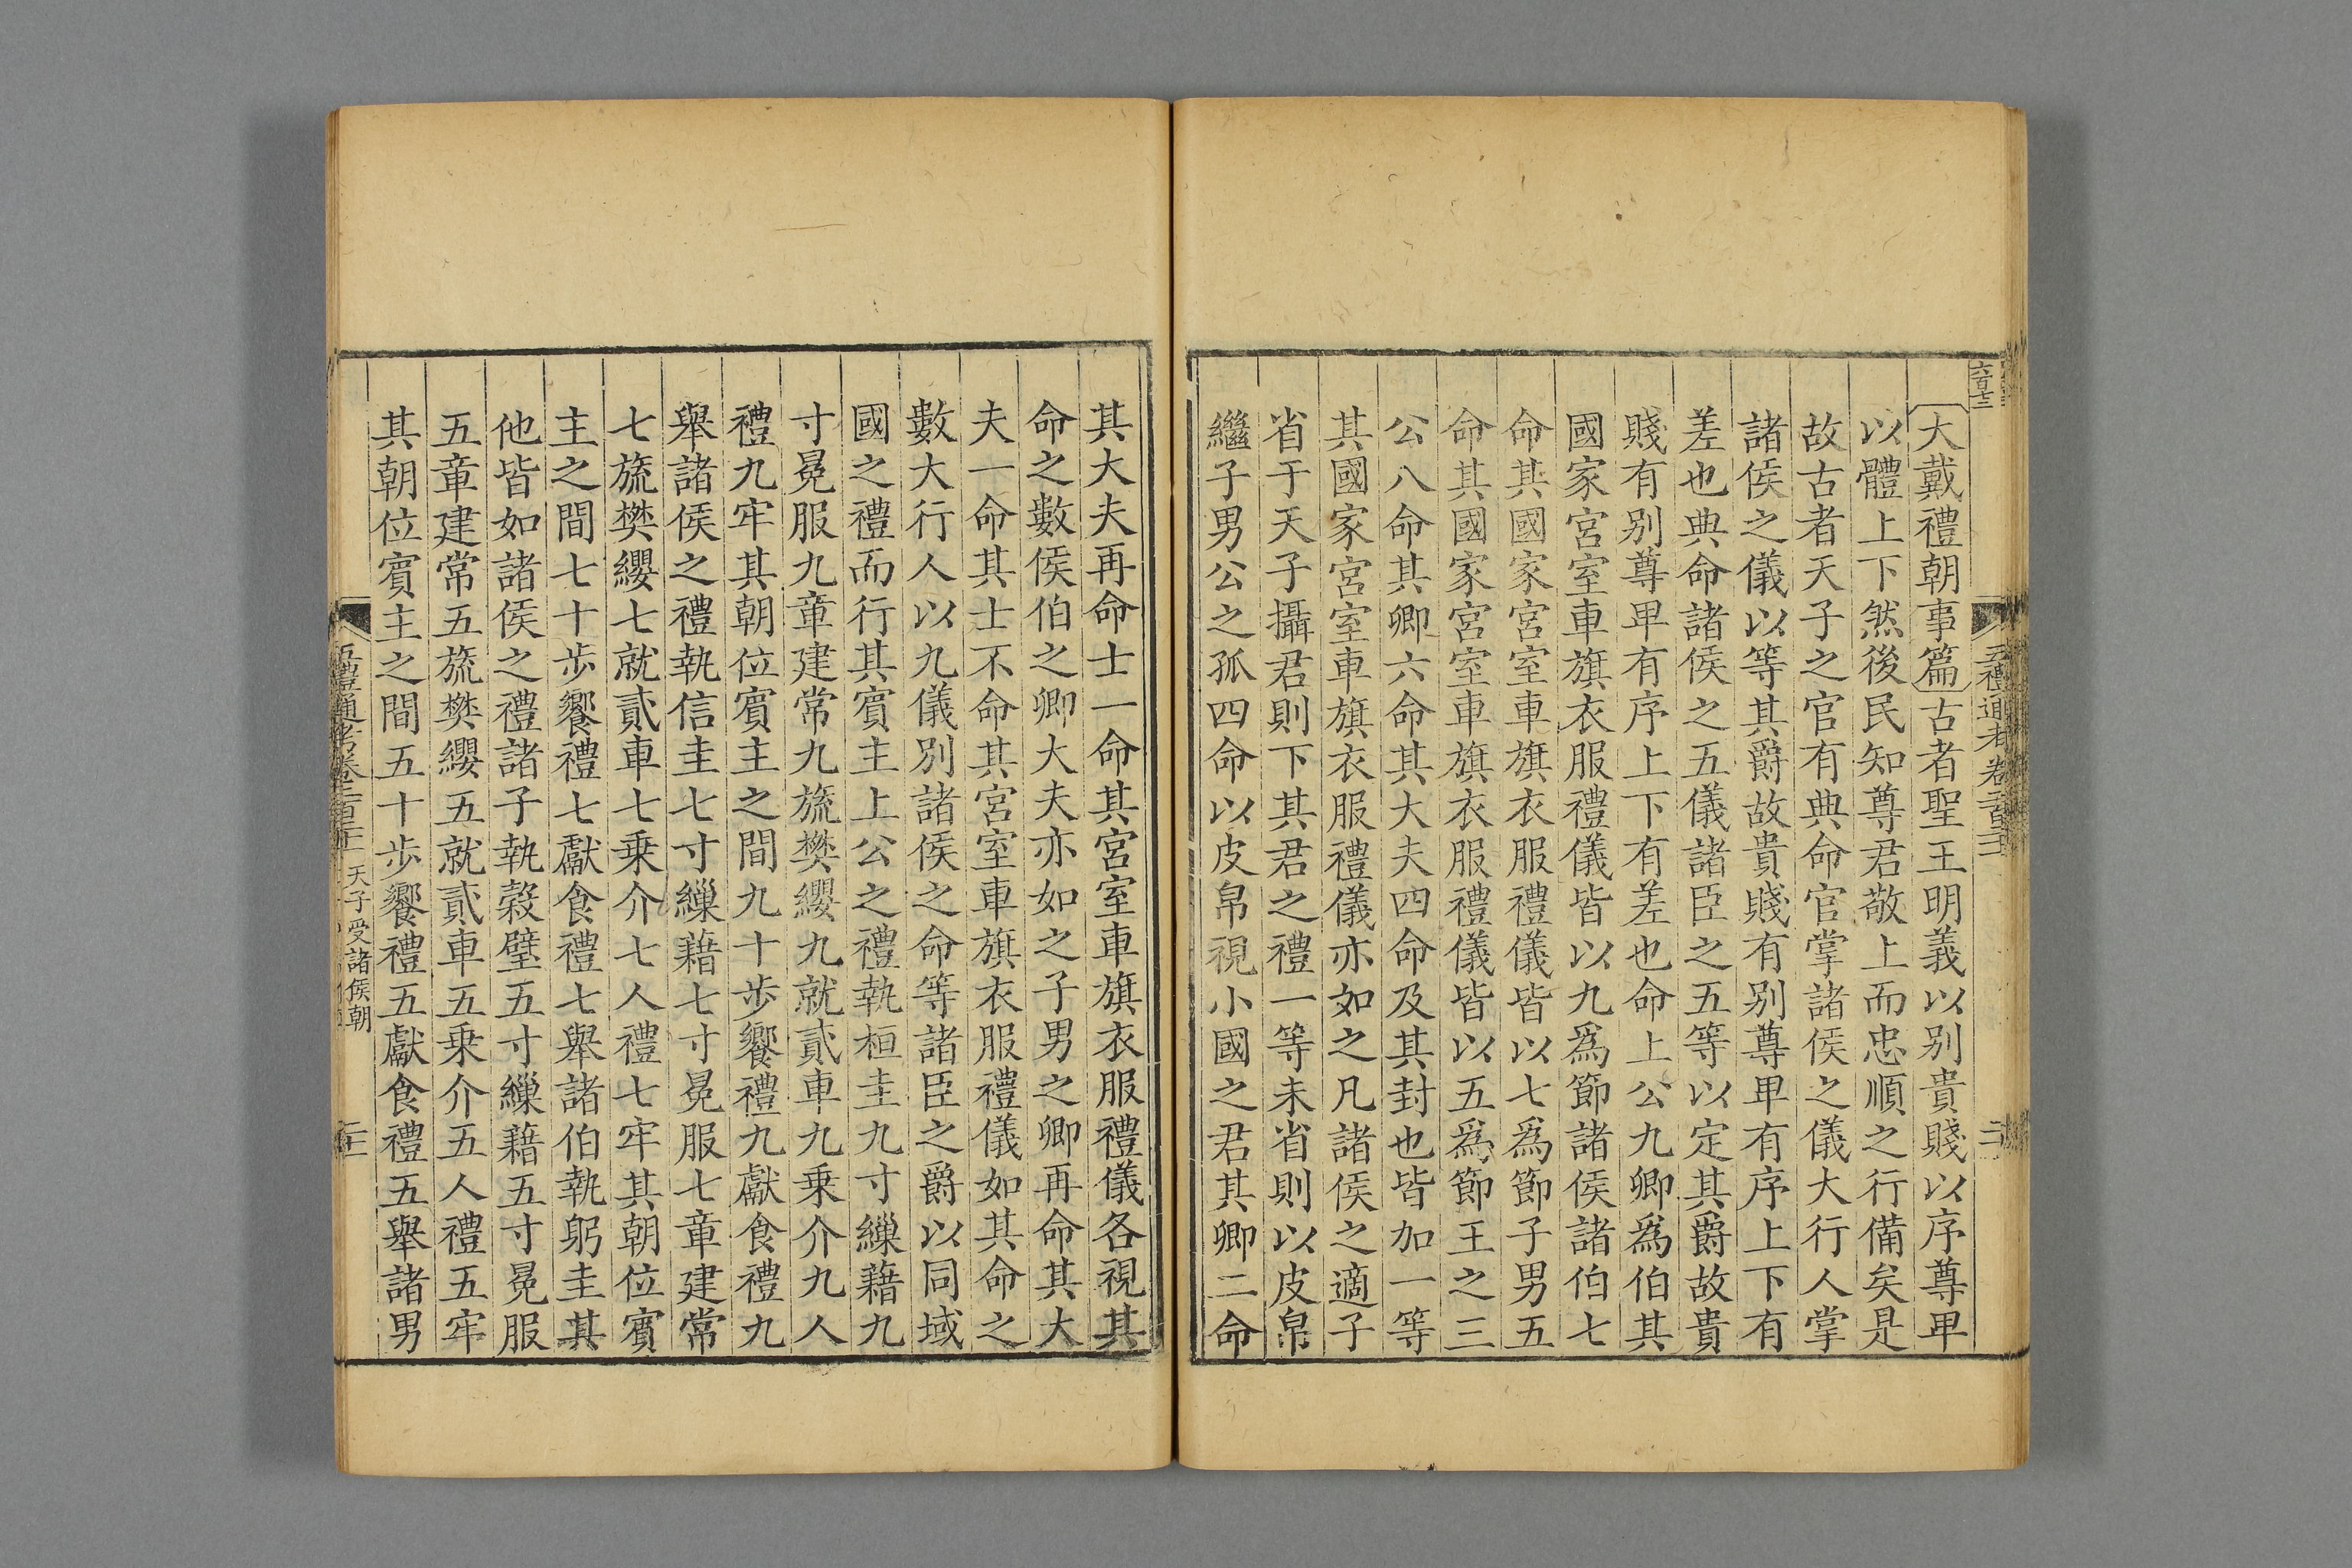 六百七十二
大戴禮朝事篇古者聖王明義以别貴賤以序尊卑
以體上下然後民知尊君敬上而忠順之行備矣是
故古者天子之官有典命官掌諸侯之儀大行人掌
諸侯之儀以等其爵故貴賤有别尊卑有序上下有
差也典命諸侯之五儀諸臣之五等以定其爵故貴
賤有别尊卑有序上下有差也命上公九卿爲伯其
國家宮室車旗衣服禮儀皆以九爲節諸侯諸伯七
命其國家宮室車旗衣服禮儀皆以七爲節子男五
命其國家宮室車旗衣服禮儀皆以五爲節王之三
公八命其卿六命其大夫四命及其封也皆加一等
其國家宮室車旗衣服禮儀亦如之凡諸侯之適子
省于天子攝君則下其君之禮一等未省則以皮帛
繼子男公之孤四命以皮帛視小國之君其卿二命
其大夫再命士一命其宮室車旗衣服禮儀各視其
命之數侯伯之卿大夫亦如之子男之卿再命其大
夫一命其士不命其宮室車旗衣服禮儀如其命之
數大行人以九儀別諸侯之命等諸臣之爵以同域
國之禮而行其賓主上公之禮執桓圭九寸繅藉九
寸冕服九章建常九旒樊纓九就貳車九乗介九人
禮九牢其朝位賓主之間九十步饗禮九獻食禮九
舉諸侯之禮執信圭七寸繅藉七寸冕服七章建常
七旒樊纓七就貳車七乗介七人禮七牢其朝位賓
主之間七十步饗禮七獻食禮七舉諸伯執躬圭其
他皆如諸侯之禮諸子執榖璧五寸繅藉五寸冕服
五章建常五旒樊纓五就貳車五乗介五人禮五牢
其朝位賓主之間五十步饗禮五獻食禮五舉諸男
五禮通考卷二百二十 天子受諸侯朝